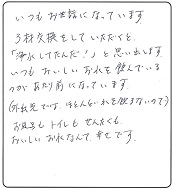 いつもお世話になっています
3材交換をしていただくと、
「浄水してたんだ!」と思い出します
いつもおいしいお水を飲んでいる
のがあたり前になっています。
(外出先では、ほとんどお水を飲まないので)
お風呂もトイレもせんたくも
おいしいお水なんて、幸せです。